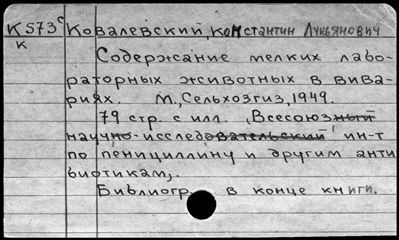 К573с Ковалевский, Константин Лукьянович
К
Содержание мелких лабо-
раторных животных в вива-
риях. М., Сельхозгиз, 1949.
79 стр. с илл. (Всесоюзный
научно-исследовательский ин-т
по пенициллину и другим анти
биотикам).
Библиогр. в конце книги.